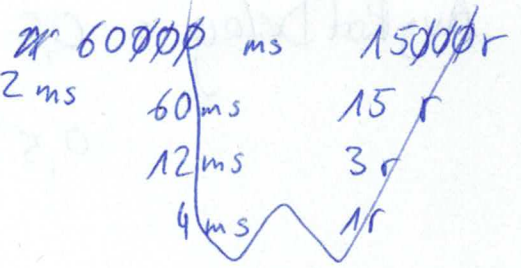 60000 ms 15000 r
2 ms
60 ms 15 r
12 ms 3 r
4 ms 1 r